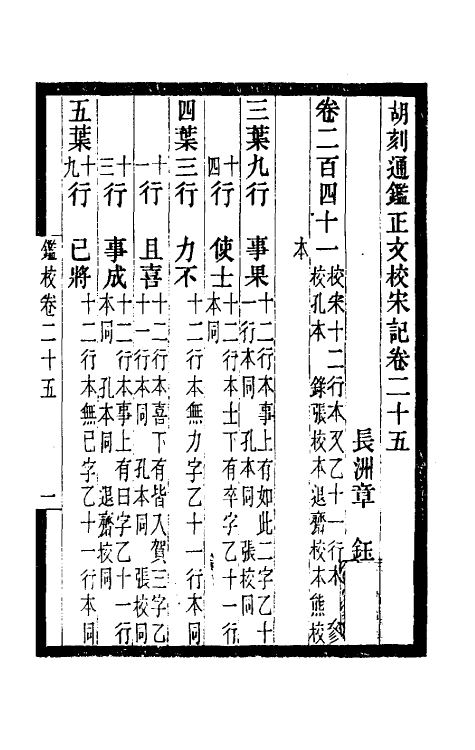 胡刻通鑑正文校宋記卷二十五
長洲章 鈺
卷二百四十一 校宋十二行本又乙十一行本 參
校孔本 錄張校本退齋校本熊校
本
三葉九行 事果 十二行本事上有如此二字乙十
一行本同 孔本同 張校同
十四行 使士 十二行本士下有卒字乙十一行
本同
四葉三行 力不 十二行本無力字乙十一行本同
十一行 且喜 十二行本喜下有皆入賀三字乙
十一行本同 孔本同 張校同
十三行 事成 十二行本事上有曰字乙十一行
本同 孔本同 退齋校同
五葉十九行 已將 十二行本無已字乙十一行本同
鑑校卷二十五 一